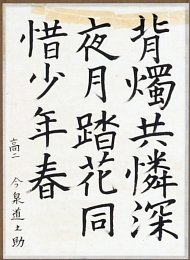 背燭共憐深
夜月踏花同
惜少年春
高二 今泉道之助